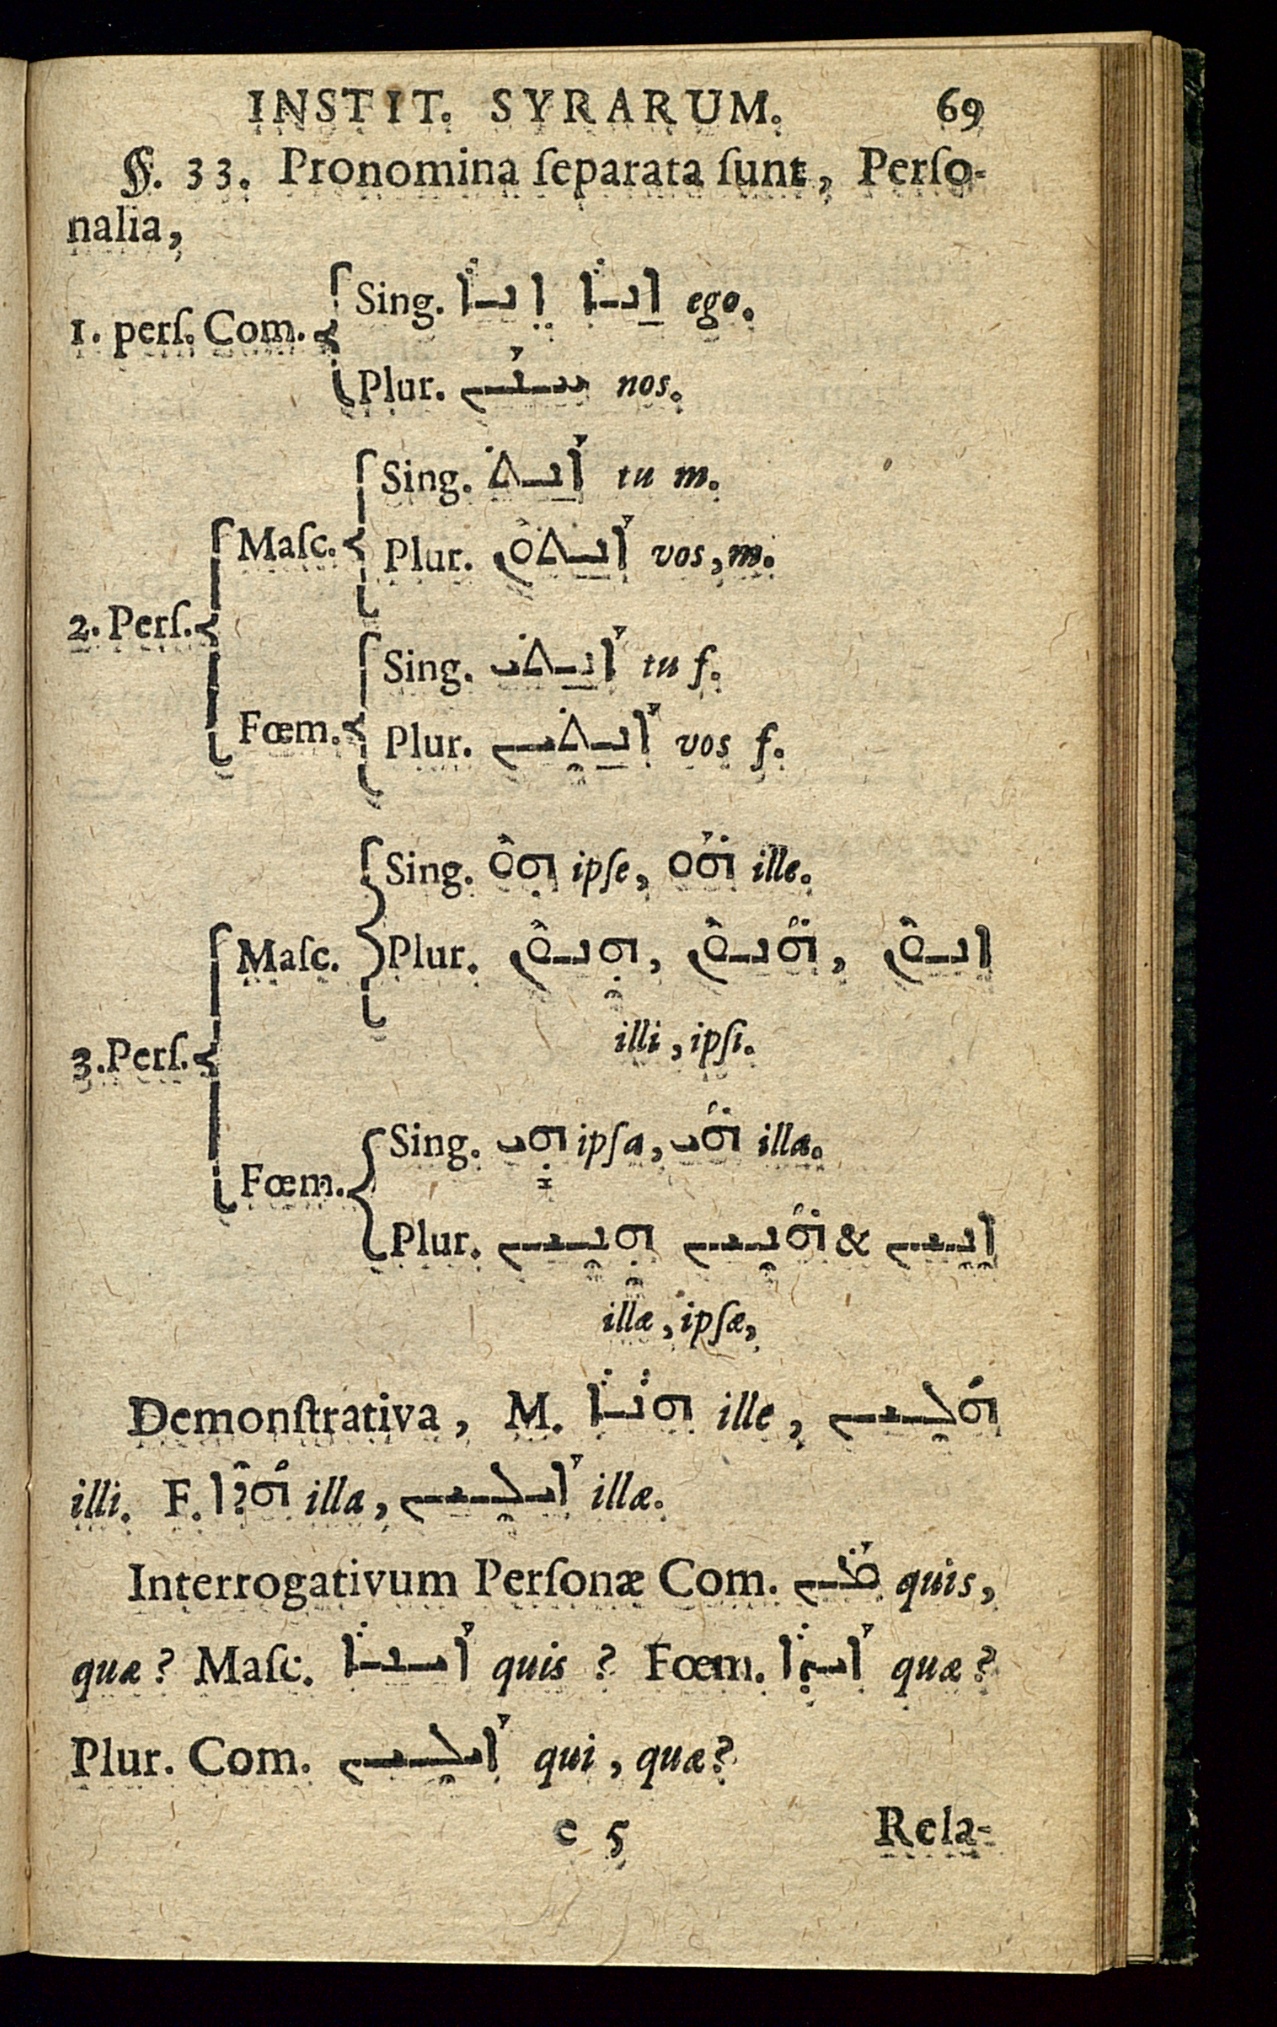 INSTIT. SYRARUM. 69
§. 33. Pronomina ſeparata ſunt, Perſo-
nalia,
1. perſ. Com. Sing. ܐܢܐ ܐܢܐ ego.
Plur. ܚܢܢ nos.
2. Perſ. Maſc. Sing. ܐܢܬ tu m.
Plur. ܐܢܬܘܢ vos, m.
Fœm. Sing. ܐܢܬܝ tu f.
Plur. ܐܢܬܝܢ vos f.
3. Perſ. Maſc. Sing. ܗܘ ipſe, ܗܘ ille.
Plur. ܗܢܘܢ, ܗܢܘܢ, ܐܢܘܢ
illi, ipſi.
Fœm. Sing. ܗܝ ipſa, ܗܝ illa.
Plur. ܗܢܝܢ ܗܢܝܢ & ܐܢܝܢ
illæ, ipſæ,
Demonſtrativa, M. ܗܢܐ ille, ܗܠܝܢ
illi. F. ܗܕܐ illa, ܐܝܠܝܢ illæ.
Interrogativum Perſonæ Com. ܡܢ quis,
quæ? Maſc. ܐܝܢܐ quis? Fœm. ܐܝܕܐ quæ?
Plur. Com. ܐܝܠܝܢ qui, quæ?
e 5 Rela-